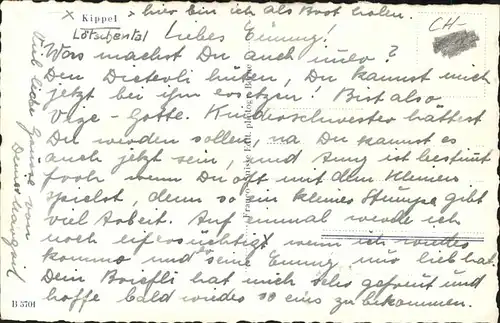 Kippel x hier bin ich als Best holen. CH-
Lötschental Liebes Emmy!
Was machst Du auch immer?
Den Dieterli hüten, Du kannst mich
jetzt bei ihm ersetzen! Bist also
Vize-Gotte. Kinderschwester hättest
Du werden sollen, na Du kannst es
auch jetzt sein, und Anny ist bestimt
froh wenn Du oft mit dem Kleinen
spielst, denn so ein kleines Stumpe gibt
viel Arbeit. Auf einmal werde ich
noch eifersüchtig wenn ich wieder
komme und er seine Emmy nur lieb hat.
Dein Briefli hat mich sehr gefreut und
hoffe bald wieder so eins zu bekommen.
Viel liebe Grüsse von
Deiner Margrit
B 5701